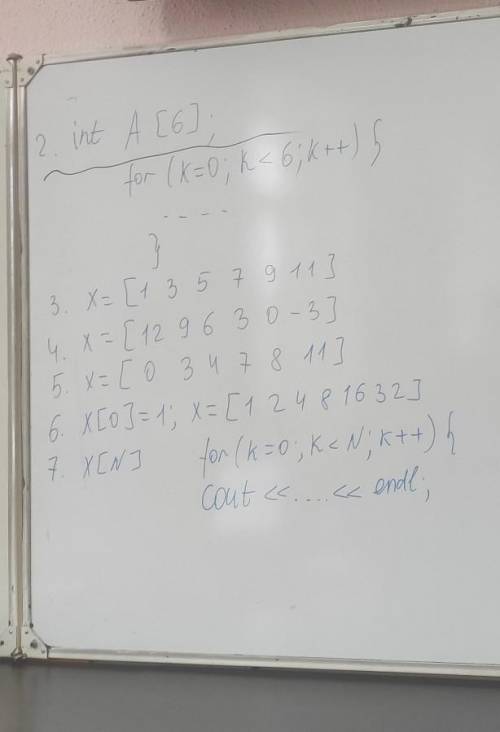 2. int A [6];
for (k=0; k<6; k++) {
....
}
3. X= [1 3 5 7 9 11]
4. X= [12 9 6 3 0 -3]
5. X= [0 3 4 7 8 11]
6. X[0]=1; X= [1 2 4 8 16 32]
7. X[N] for (k=0; k<N; k++) {
cout <<....<< endl;